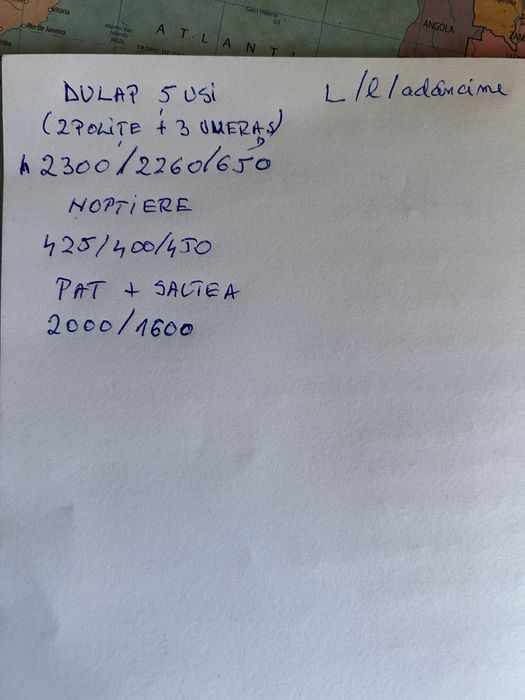 Vitória
Rio de Janeiro
Martin Vaz
Islands
Brazil
TROPIC OF CA
ATLANTI
Saint Helena
U.K.
ANGOLA
ZAM
DULAP 5 USI L/l/adâncime
(2 POLIȚE + 3 UMERAȘ)
h 2300/2260/650
NOPTIERE
425/400/450
PAT + SALTEA
2000/1600